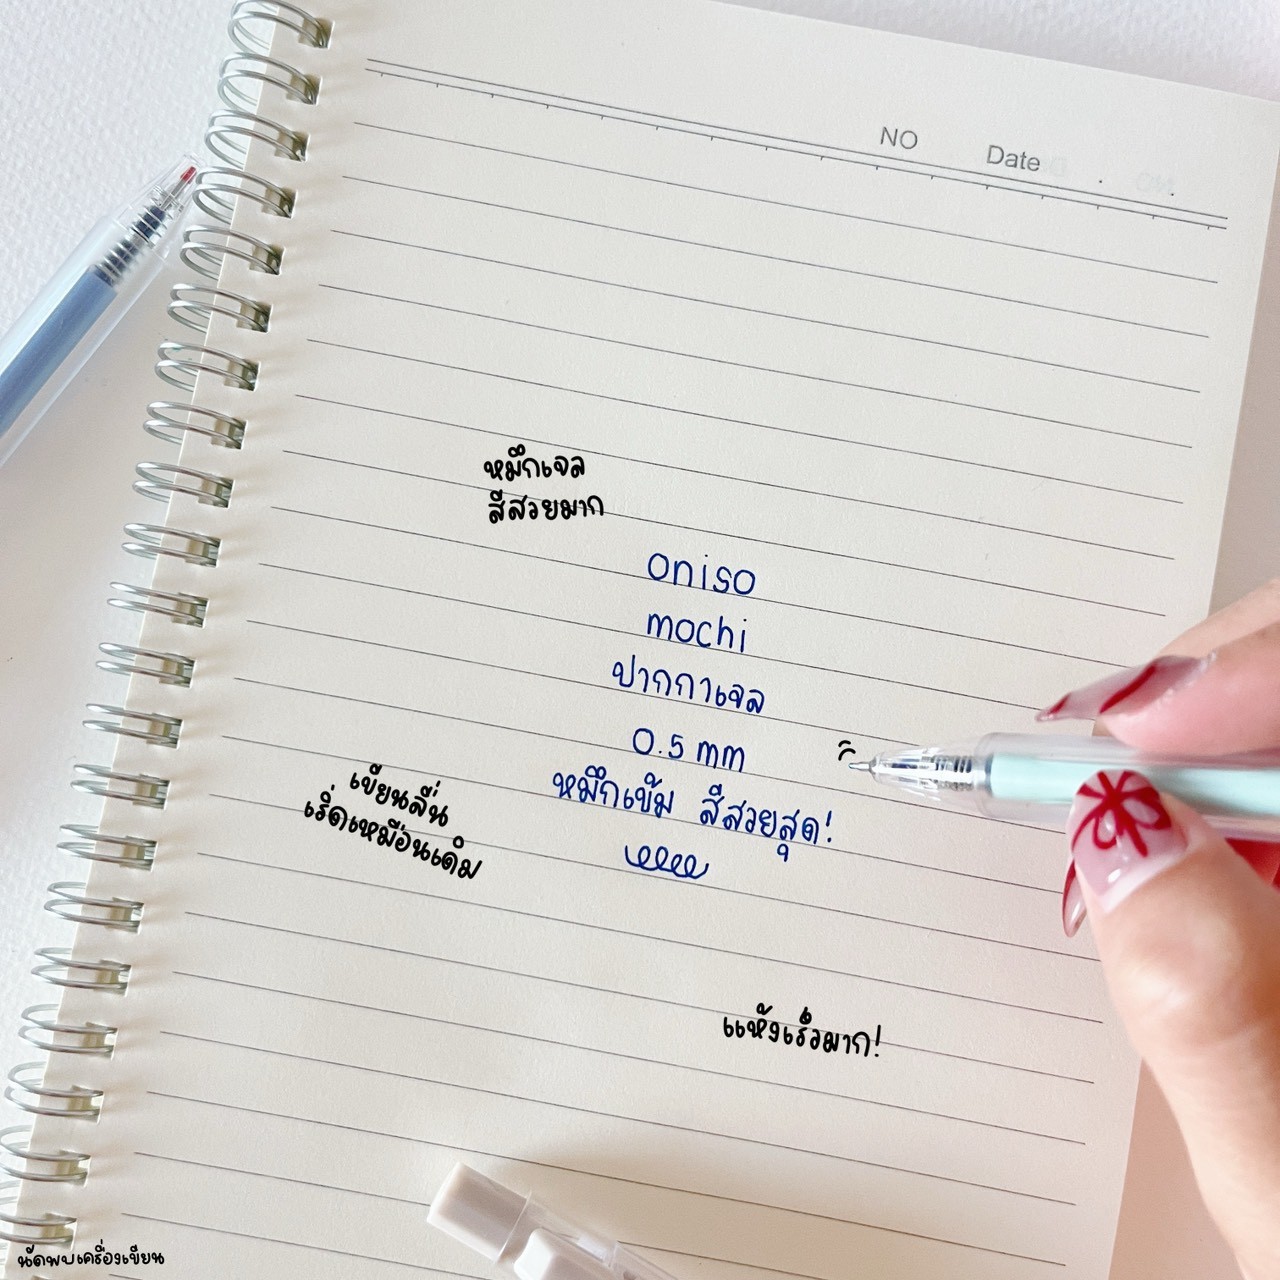 NO Date
หมึกเจล
สีสวยมาก
oniso
mochi
ปากกาเจล
0.5 mm
หมึกเข้ม สีสวยสุด!
เขียนลื่น
เริ่ดเหมือนเดิม
แห้งเร็วมาก!
นัดพบเครื่องเขียน